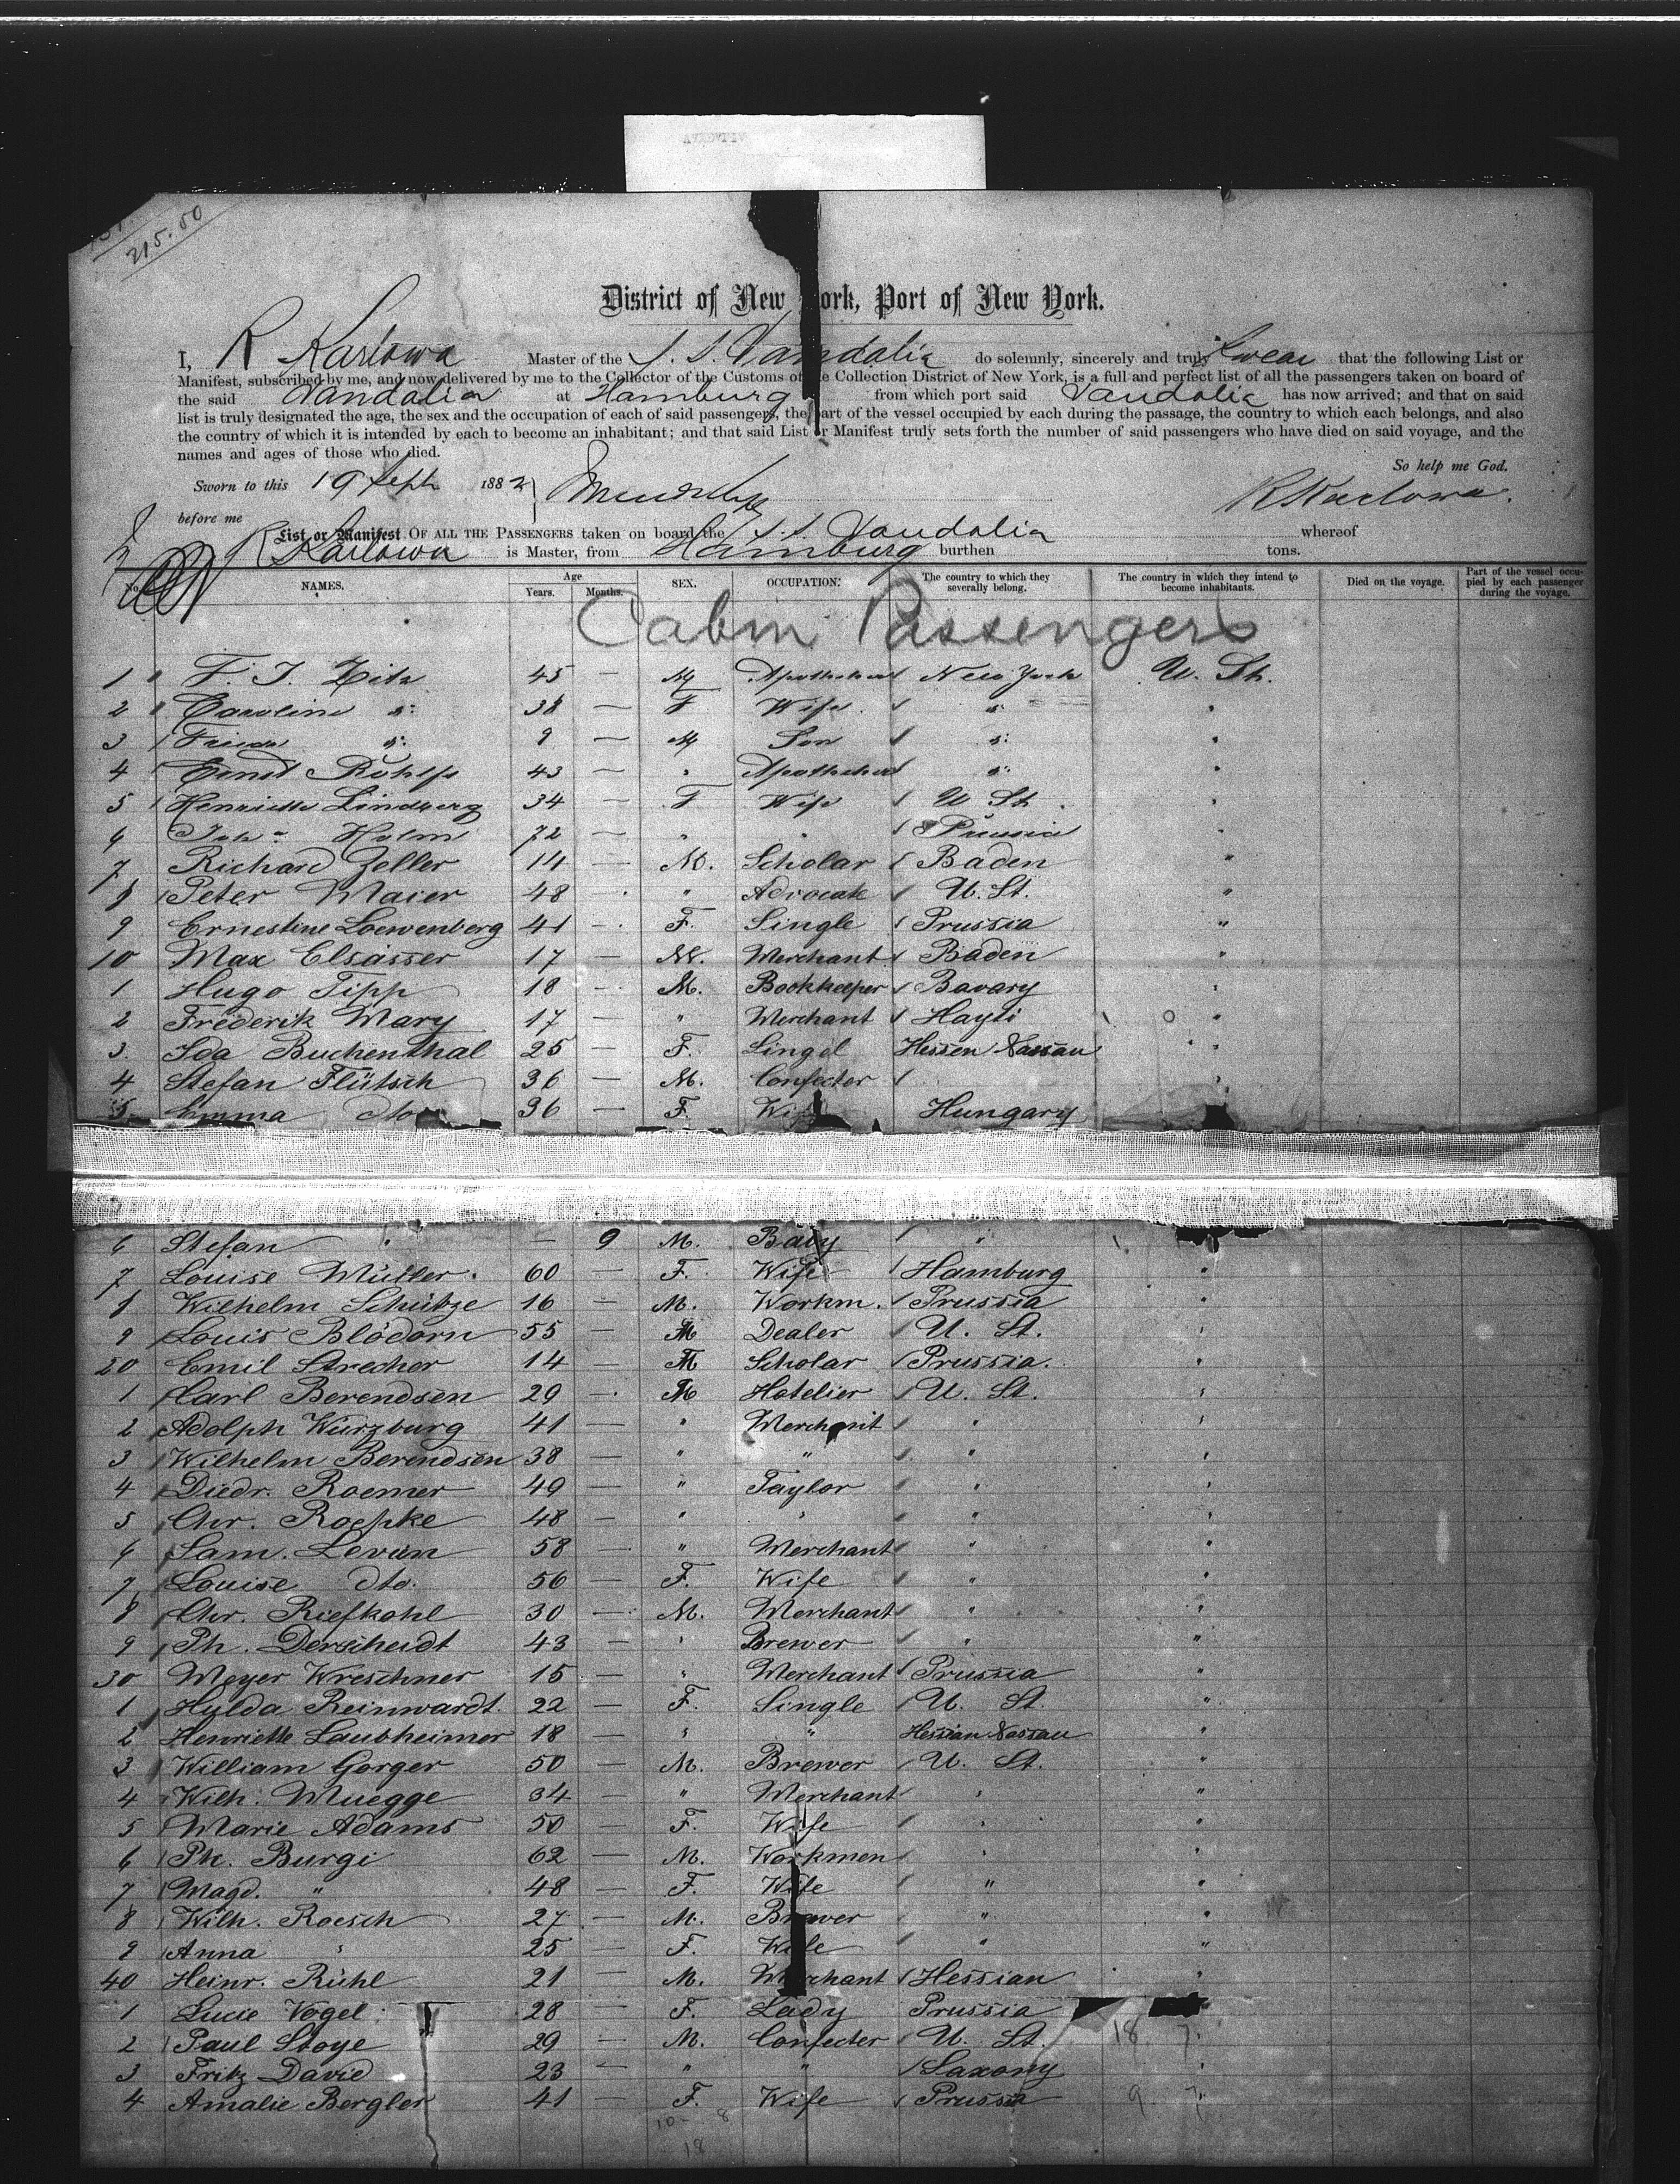 215.50
District of New York, Port of New York.
I, R Karlowa Master of the S. S. Vandalia do solemnly, sincerely and truly swear that the following List or
Manifest, subscribed by me, and now delivered by me to the Collector of the Customs of the Collection District of New York, is a full and perfect list of all the passengers taken on board of
the said Vandalia at Hamburg from which port said Vandalia has now arrived; and that on said
list is truly designated the age, the sex and the occupation of each of said passengers, the part of the vessel occupied by each during the passage, the country to which each belongs, and also
the country of which it is intended by each to become an inhabitant; and that said List or Manifest truly sets forth the number of said passengers who have died on said voyage, and the
names and ages of those who died.
So help me God.
Sworn to this 19 Sept 1882
R Karlowa.
before me
List or Manifest OF ALL THE PASSENGERS taken on board the S. S. Vandalia whereof
R Karlowa is Master, from Hamburg burthen tons.
No. NAMES. Age Years. Months. SEX. OCCUPATION. The country to which they severally belong. The country in which they intend to become inhabitants. Died on the voyage. Part of the vessel occupied by each passenger during the voyage.
Cabin Passengers
1 F. J. Zitz 45 — M Apotheker New York U. St.
2 Caroline " 38 — F Wife " "
3 " 9 — M Son " "
4 Ernst 43 — " Apotheker " "
5 Henriette Lindberg 34 — F Wife U St. "
6 Joh Holm 72 — " " Prussia "
7 Richard Zeller 14 — M. Scholar Baden "
8 Peter Maier 48 — " Advocate U. St. "
9 Ernestine Loewenberg 41 — F. Single Prussia "
10 Max Elsässer 17 — M. Merchant Baden "
1 Hugo Tipp 18 — M. Bookkeeper Bavary "
2 Frederik Mary 17 — " Merchant Hayti 0 "
3. Ida Buchenthal 25 — F. Singel Hessen Nassau "
4 Stefan Flütsch 36 — M. Confecter "
5 Emma dto 36 — F. Wife Hungary
6 Stefan " — 9 M. Baby "
7 Louise Müller. 60 — F. Wife Hamburg "
8 Wilhelm Schütze 16 — M. Workm. Prussia "
9 Louis Blödorn 55 — M Dealer U. St. "
20 Emil Strecker 14 — M Scholar Prussia. "
1 Carl Berendsen 29 — M Hotelier U. St. "
2 Adolph Würzburg 41 — " Merchant " "
3 Wilhelm Berendsen 38 — " " " "
4 Diedr. Roemer 49 — " Taylor " "
5 Chr. Roepke 48 — " " " "
6 Sam. Levin 58 — " Merchant " "
7 Louise dto. 56 — F. Wife " "
8 Chr. Riefkohl 30 — M. Merchant " "
9 Ph. Derscheidt 43 — " Brewer " "
30 Meyer Kreschner 15 — " Merchant Prussia "
1 Hylda Reinwardt. 22 — F. Single U. St. "
2 Henriette Laubheimer 18 — " " Hessian Nassau "
3 William Gorger 50 — M. Brewer U. St. "
4 Wilh. Muegge 34 — " Merchant " "
5 Marie Adams 50 — F. Wife " "
6 Ph. Burgi 62 — M. Workmen " "
7 Magd. " 48 — F. Wife " "
8 Wilh. Roesch 27 — M. Brewer " "
9 Anna " 25 — F. Wife " "
40 Heinr. Rühl 21 — M. Merchant Hessian "
1 Lucie Vogel 28 — F. Lady Prussia "
2 Paul Stoye 29 — M. Confecter U. St. 18 7
3 Fritz David 23 — " " Saxony "
4 Amalie Bergler 41 — F. Wife Prussia 9 7
10 8
18